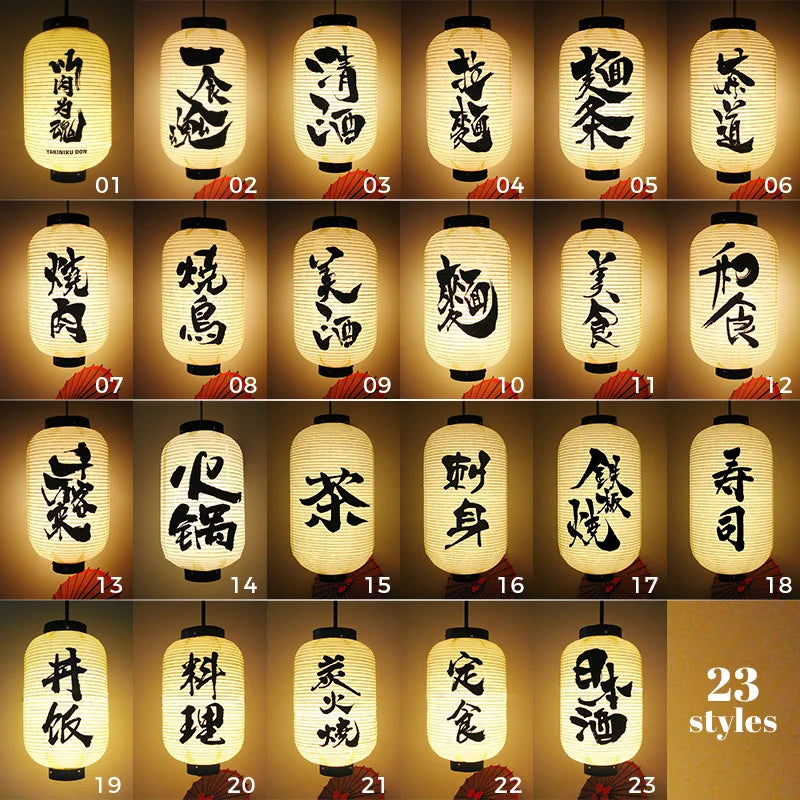 肉为魂
YAKINIKU DON
01
一食入魂
02
清酒
03
拉麵
04
麵条
05
茶道
06
燒肉
07
燒鳥
08
美酒
09
麵
10
美食
11
和食
12
千客万来
13
火锅
14
茶
15
刺身
16
鉄板燒
17
寿司
18
丼饭
19
料理
20
炭火燒
21
定食
22
日本酒
23
23
styles